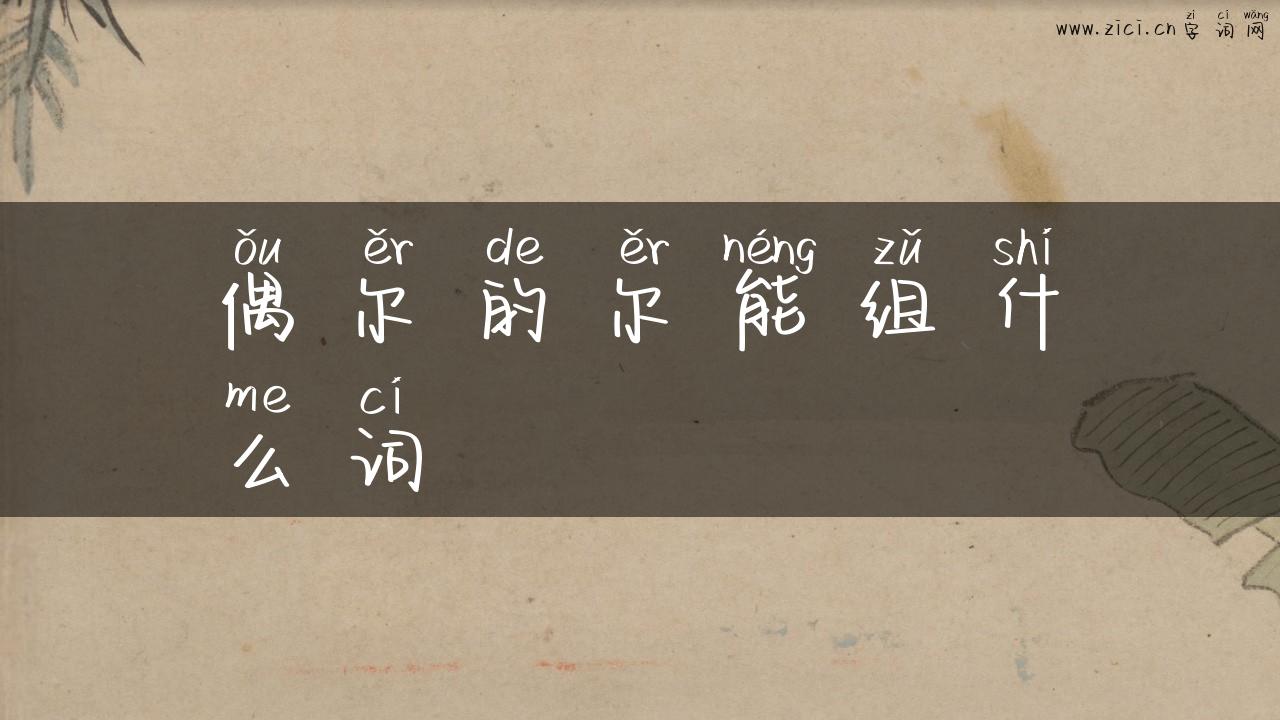 zì cí wǎng
www.zici.cn 字 词 网
ǒu ěr de ěr néng zǔ shí
偶 尔 的 尔 能 组 什
me cí
么 词